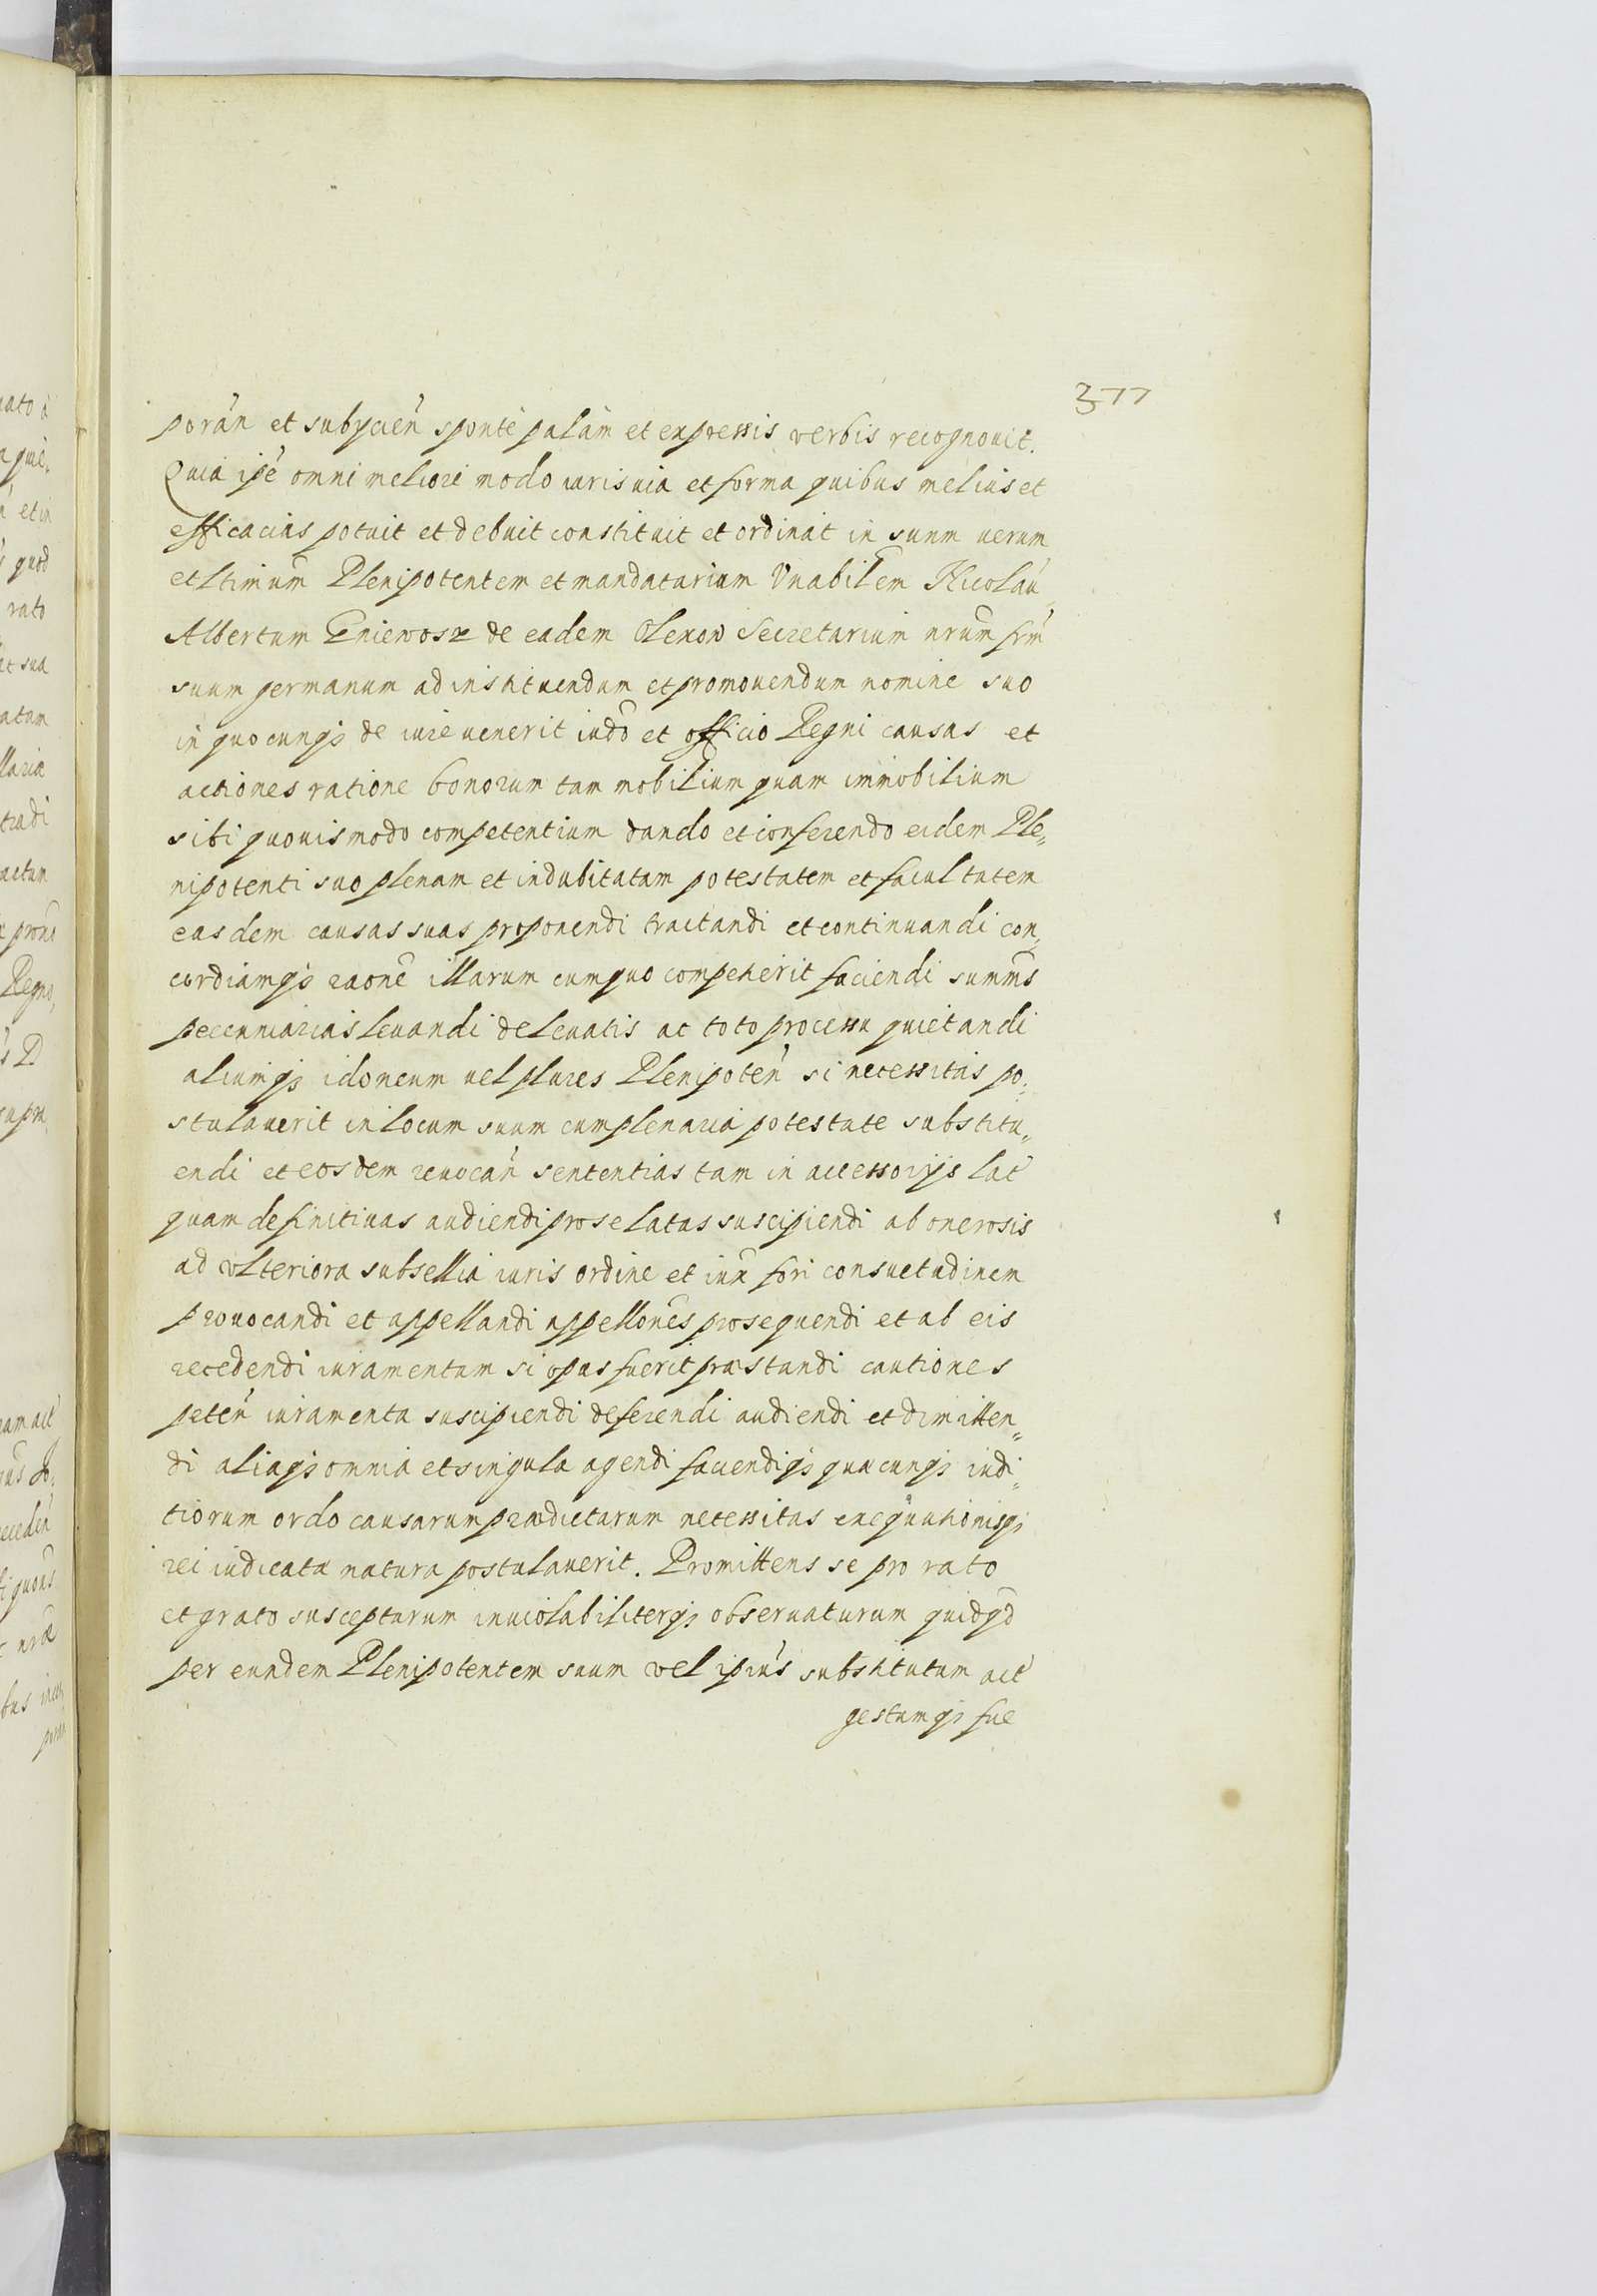 377
porãn et subycień sponte palam et expressis verbis recognouit.
Quia ipẽ omni meliori modo iuris uia et forma quibus melius et
efficacius potuit et debuit constituit et ordinat in suum uerum
et ltimum Plenipotentem et mandatarium Vnabilem Nicolau
Albertum Gniewosz de eadem Olexow Secretarium nrum frm
suum germanum ad instituendum et promouendum nomine suo
in quocunqз de iure uenerit iudo et officio Regni causas et
actiones ratione bonorum tam mobilium quam immobilium
sibi quouismodo competentium dando et conferendo eidem Ple„
nipotenti suo plenam et indubitatam potestatem et facultatem
easdem causas suas proponendi tractandi et continuandi con„
cordiamqз raone illarum cum quo competierit faciendi summs
pecuniarias leuandi de leuatis ac toto processu quietandi
aliumqз idoneum uel plures Plenipoteń si necessitas po„
stulauerit in locum suum cum plenaria potestate substitu„
endi et eosdem reuocań sententias tam in accessorijs lat
quam definitiuas audiendi pro se latas suscipiendi ab onerosis
ad vlteriora subsellia iuris ordine et iux fori consuetudinem
prouocandi et appellandi appellones prosequendi et ab eis
recedendi iuramentum si opus fuerit præstandi cautiones
peteń iuramenta suscipiendi deferendi audiendi et dimitten„
di aliaqз omnia et singula agendi faciendiqз quæcunqз iudi„
tiorum ordo causarum prædictarum necessitas exequutionisqз
rei iudicatæ natura postulauerit. Promittens se pro rato
et grato suscepturum inuiolabiliterqз obseruaturum quidqd
per eundem Plenipotentem suum vel ipius substitutum act
gestumqз fue